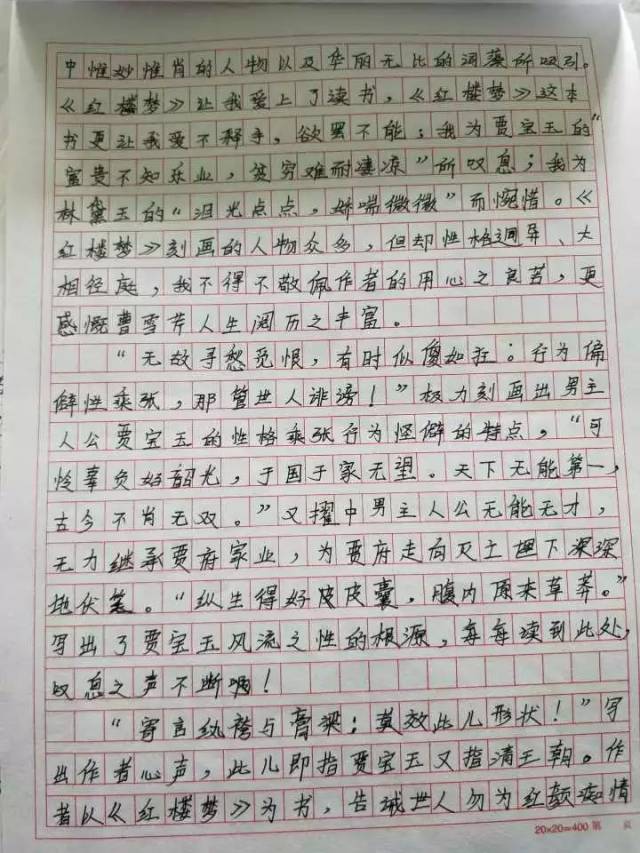 中惟妙惟肖的人物以及华丽无比的词藻所吸引。
《红楼梦》让我爱上了读书，《红楼梦》这本
书更让我爱不释手，欲罢不能；我为贾宝玉的“
富贵不知乐业，贫穷难耐凄凉”所叹息；我为
林黛玉的“泪光点点，娇喘微微”而惋惜。《
红楼梦》刻画的人物众多，但却性格迥异、大
相径庭，我不得不敬佩作者的用心之良苦，更
感慨曹雪芹人生阅历之丰富。
“无故寻愁觅恨，有时似傻如狂；行为偏
僻性乘张，那管世人诽谤！”极力刻画出男主
人公贾宝玉的性格乘张行为怪僻的特点，“可
怜辜负好韶光，于国于家无望。天下无能第一，
古今不肖无双。”又擢中男主人公无能无才，
无力继承贾府家业，为贾府走向灭亡埋下深深
地伏笔。“纵生得好皮皮囊，腹内原来草莽。”
写出了贾宝玉风流之性的根源，每每读到此处，
叹息之声不断啊！
“寄言纨袴与膏粱：莫效此儿形状！”写
出作者心声，此儿即指贾宝玉又指清王朝。作
者以《红楼梦》为书，告诫世人勿为红颜痴情
20×20=400 第 页